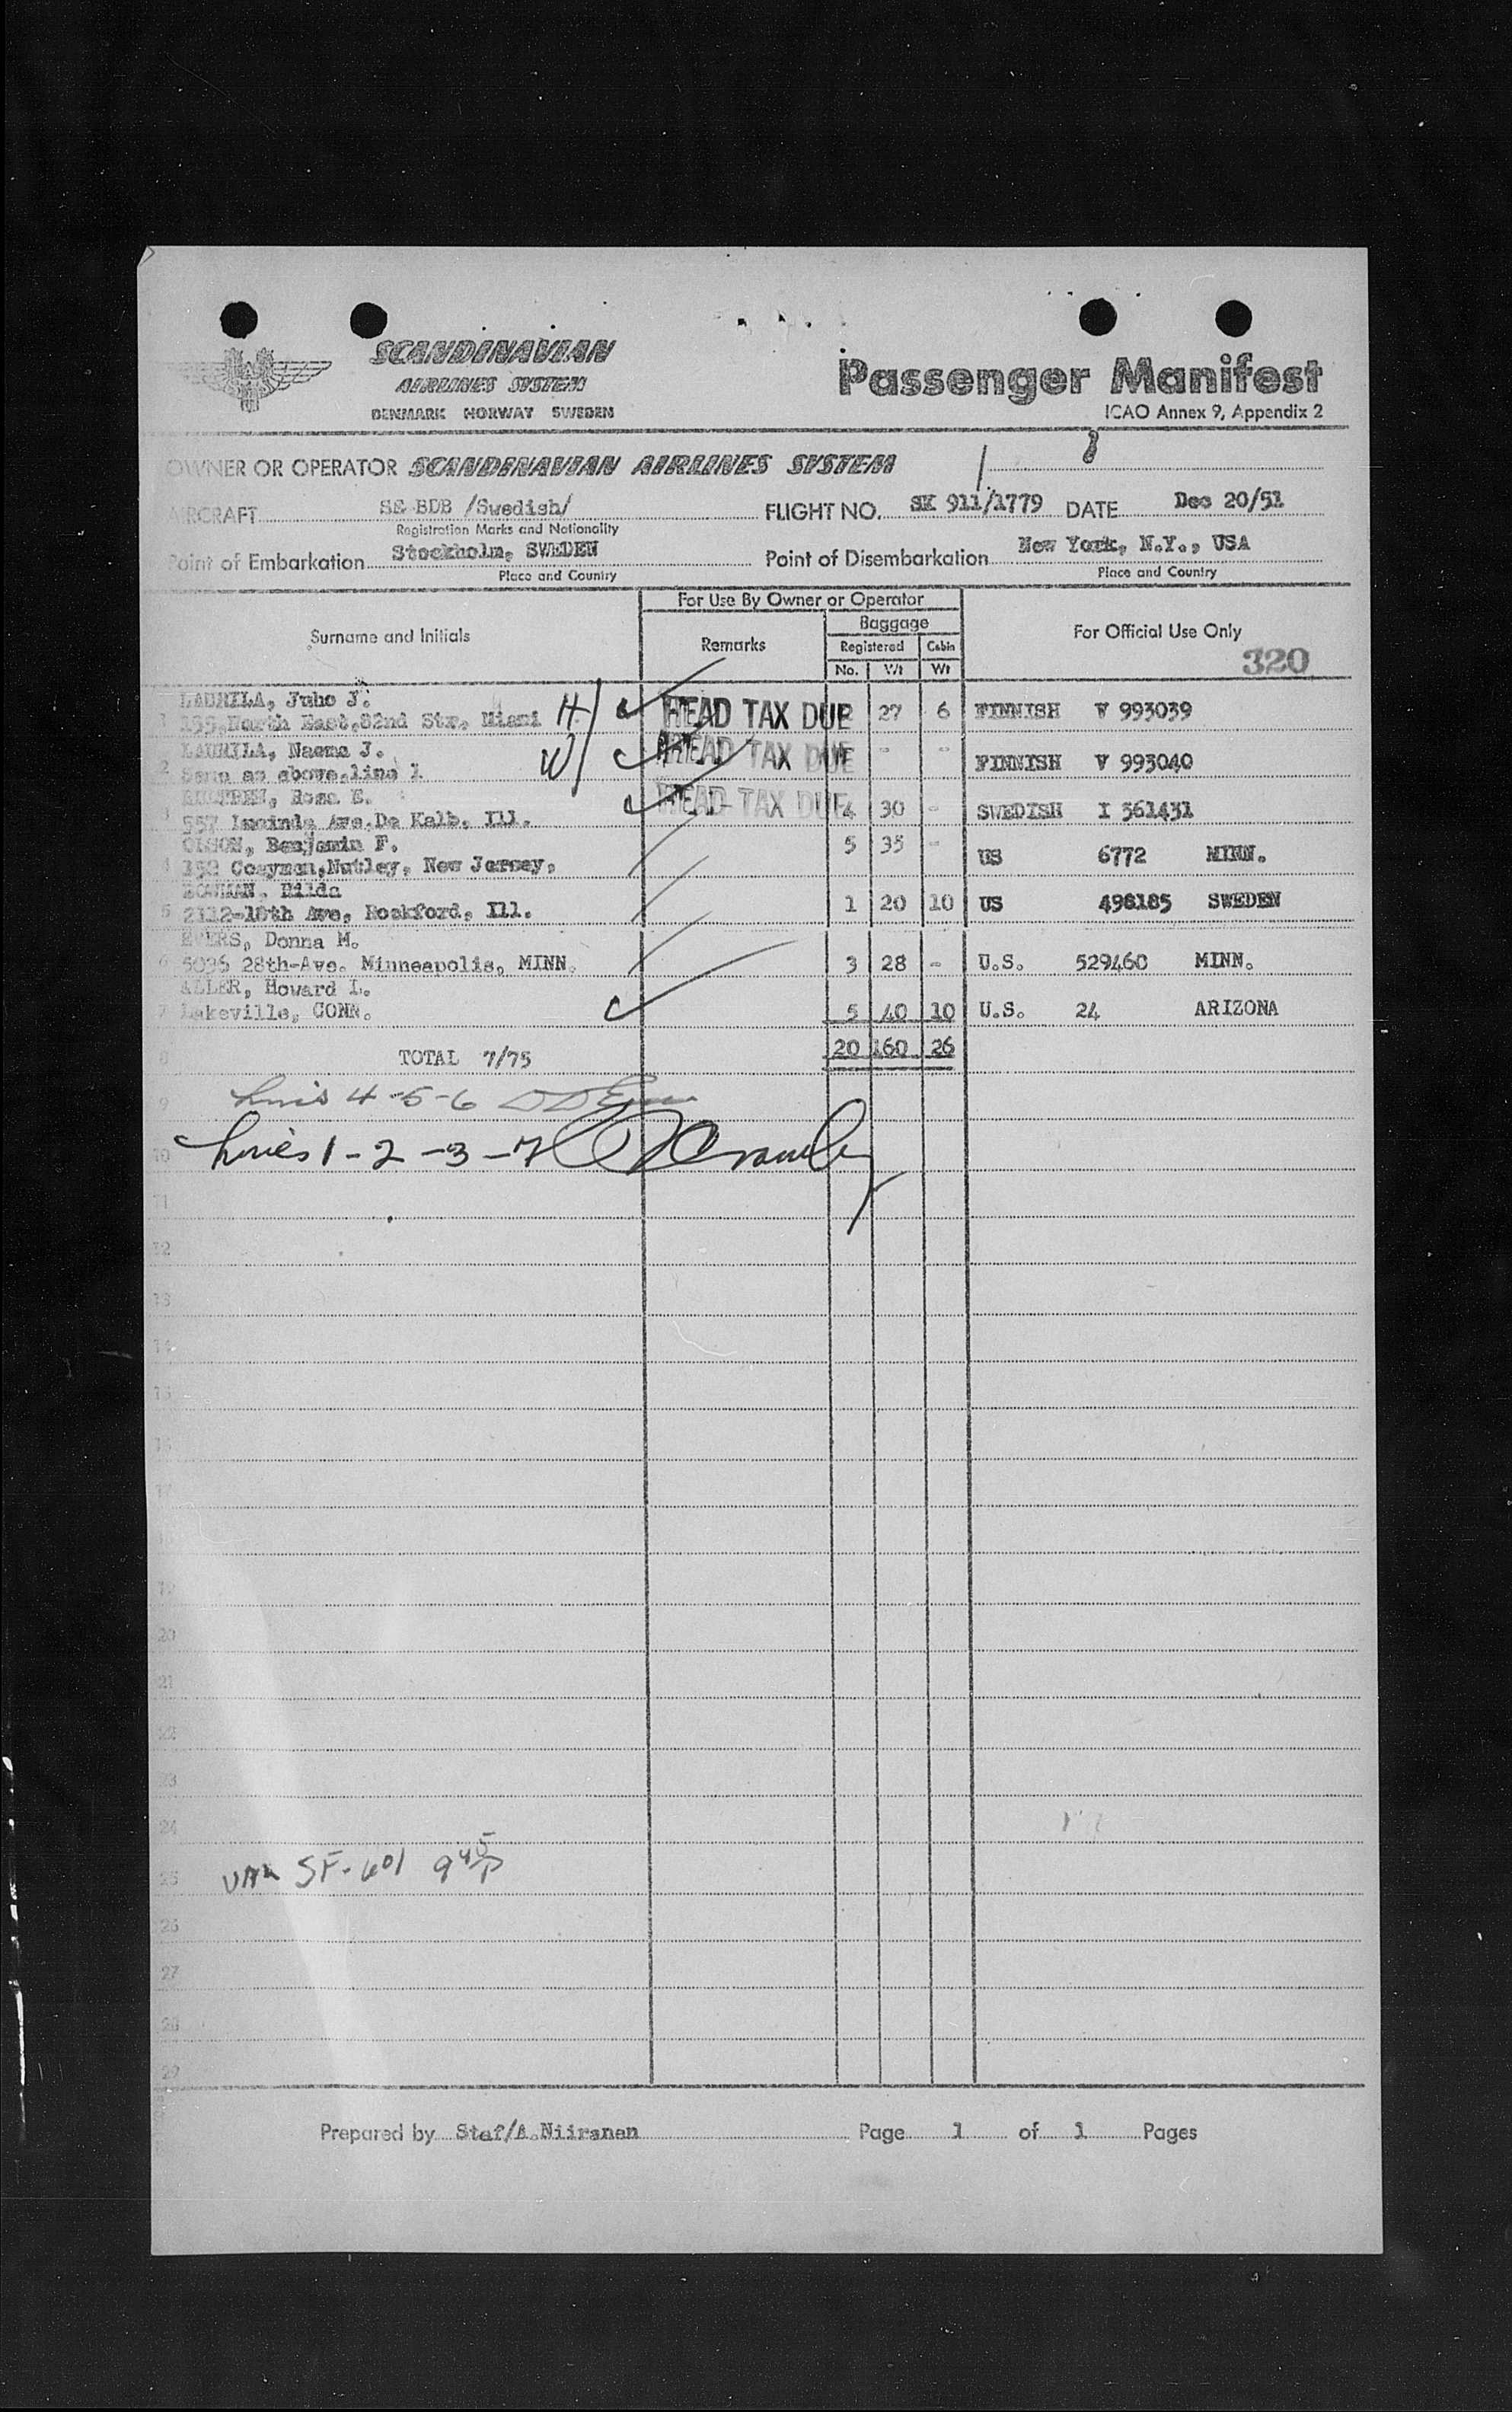 SCANDINAVIAN
AIRLINES SYSTEM
DENMARK NORWAY SWEDEN
Passenger Manifest
ICAO Annex 9, Appendix 2
OWNER OR OPERATOR SCANDINAVIAN AIRLINES SYSTEM
AIRCRAFT SE-BDB /Swedish/ FLIGHT NO. SK 911/1779 DATE Dec 20/51
Registration Marks and Nationality
Point of Embarkation Stockholm, SWEDEN Point of Disembarkation New York, N.Y., USA
Place and Country Place and Country
For Use By Owner or Operator
Surname and Initials Remarks Baggage For Official Use Only
Registered Cabin
No. Wt Wt
320
LAURILA, Juho J.
1 135 North East,82nd Str. Miami H HEAD TAX DUE 2 27 6 FINNISH V 993039
LAURILA, Naema J.
2 Same as above,line 1 W HEAD TAX DUE - - FINNISH V 993040
Rosa E.
3 557 Lucinda Ave.De Kalb, Ill. HEAD TAX DUE 4 30 - SWEDISH I 561431
OLSON, Benjamin F.
4 152 Nutley, New Jersey, 5 35 - US 6772 MINN.
BOWMAN, Hilda
5 2112-18th Ave, Rockford, Ill. 1 20 10 US 498185 SWEDEN
EVERS, Donna M.
6 5036 28th-Ave. Minneapolis, MINN. 3 28 - U.S. 529460 MINN.
ALLER, Howard L.
7 Lakeville, CONN. 5 40 10 U.S. 24 ARIZONA
8 TOTAL 7/75 20 160 26
9 Lines 4-5-6
10 Lines 1-2-3-7
11
12
13
14
15
16
17
18
19
20
21
22
23
24
25 SF-601 9 45 P
26
27
28
29
Prepared by Staf/A.Niiranen Page 1 of 1 Pages